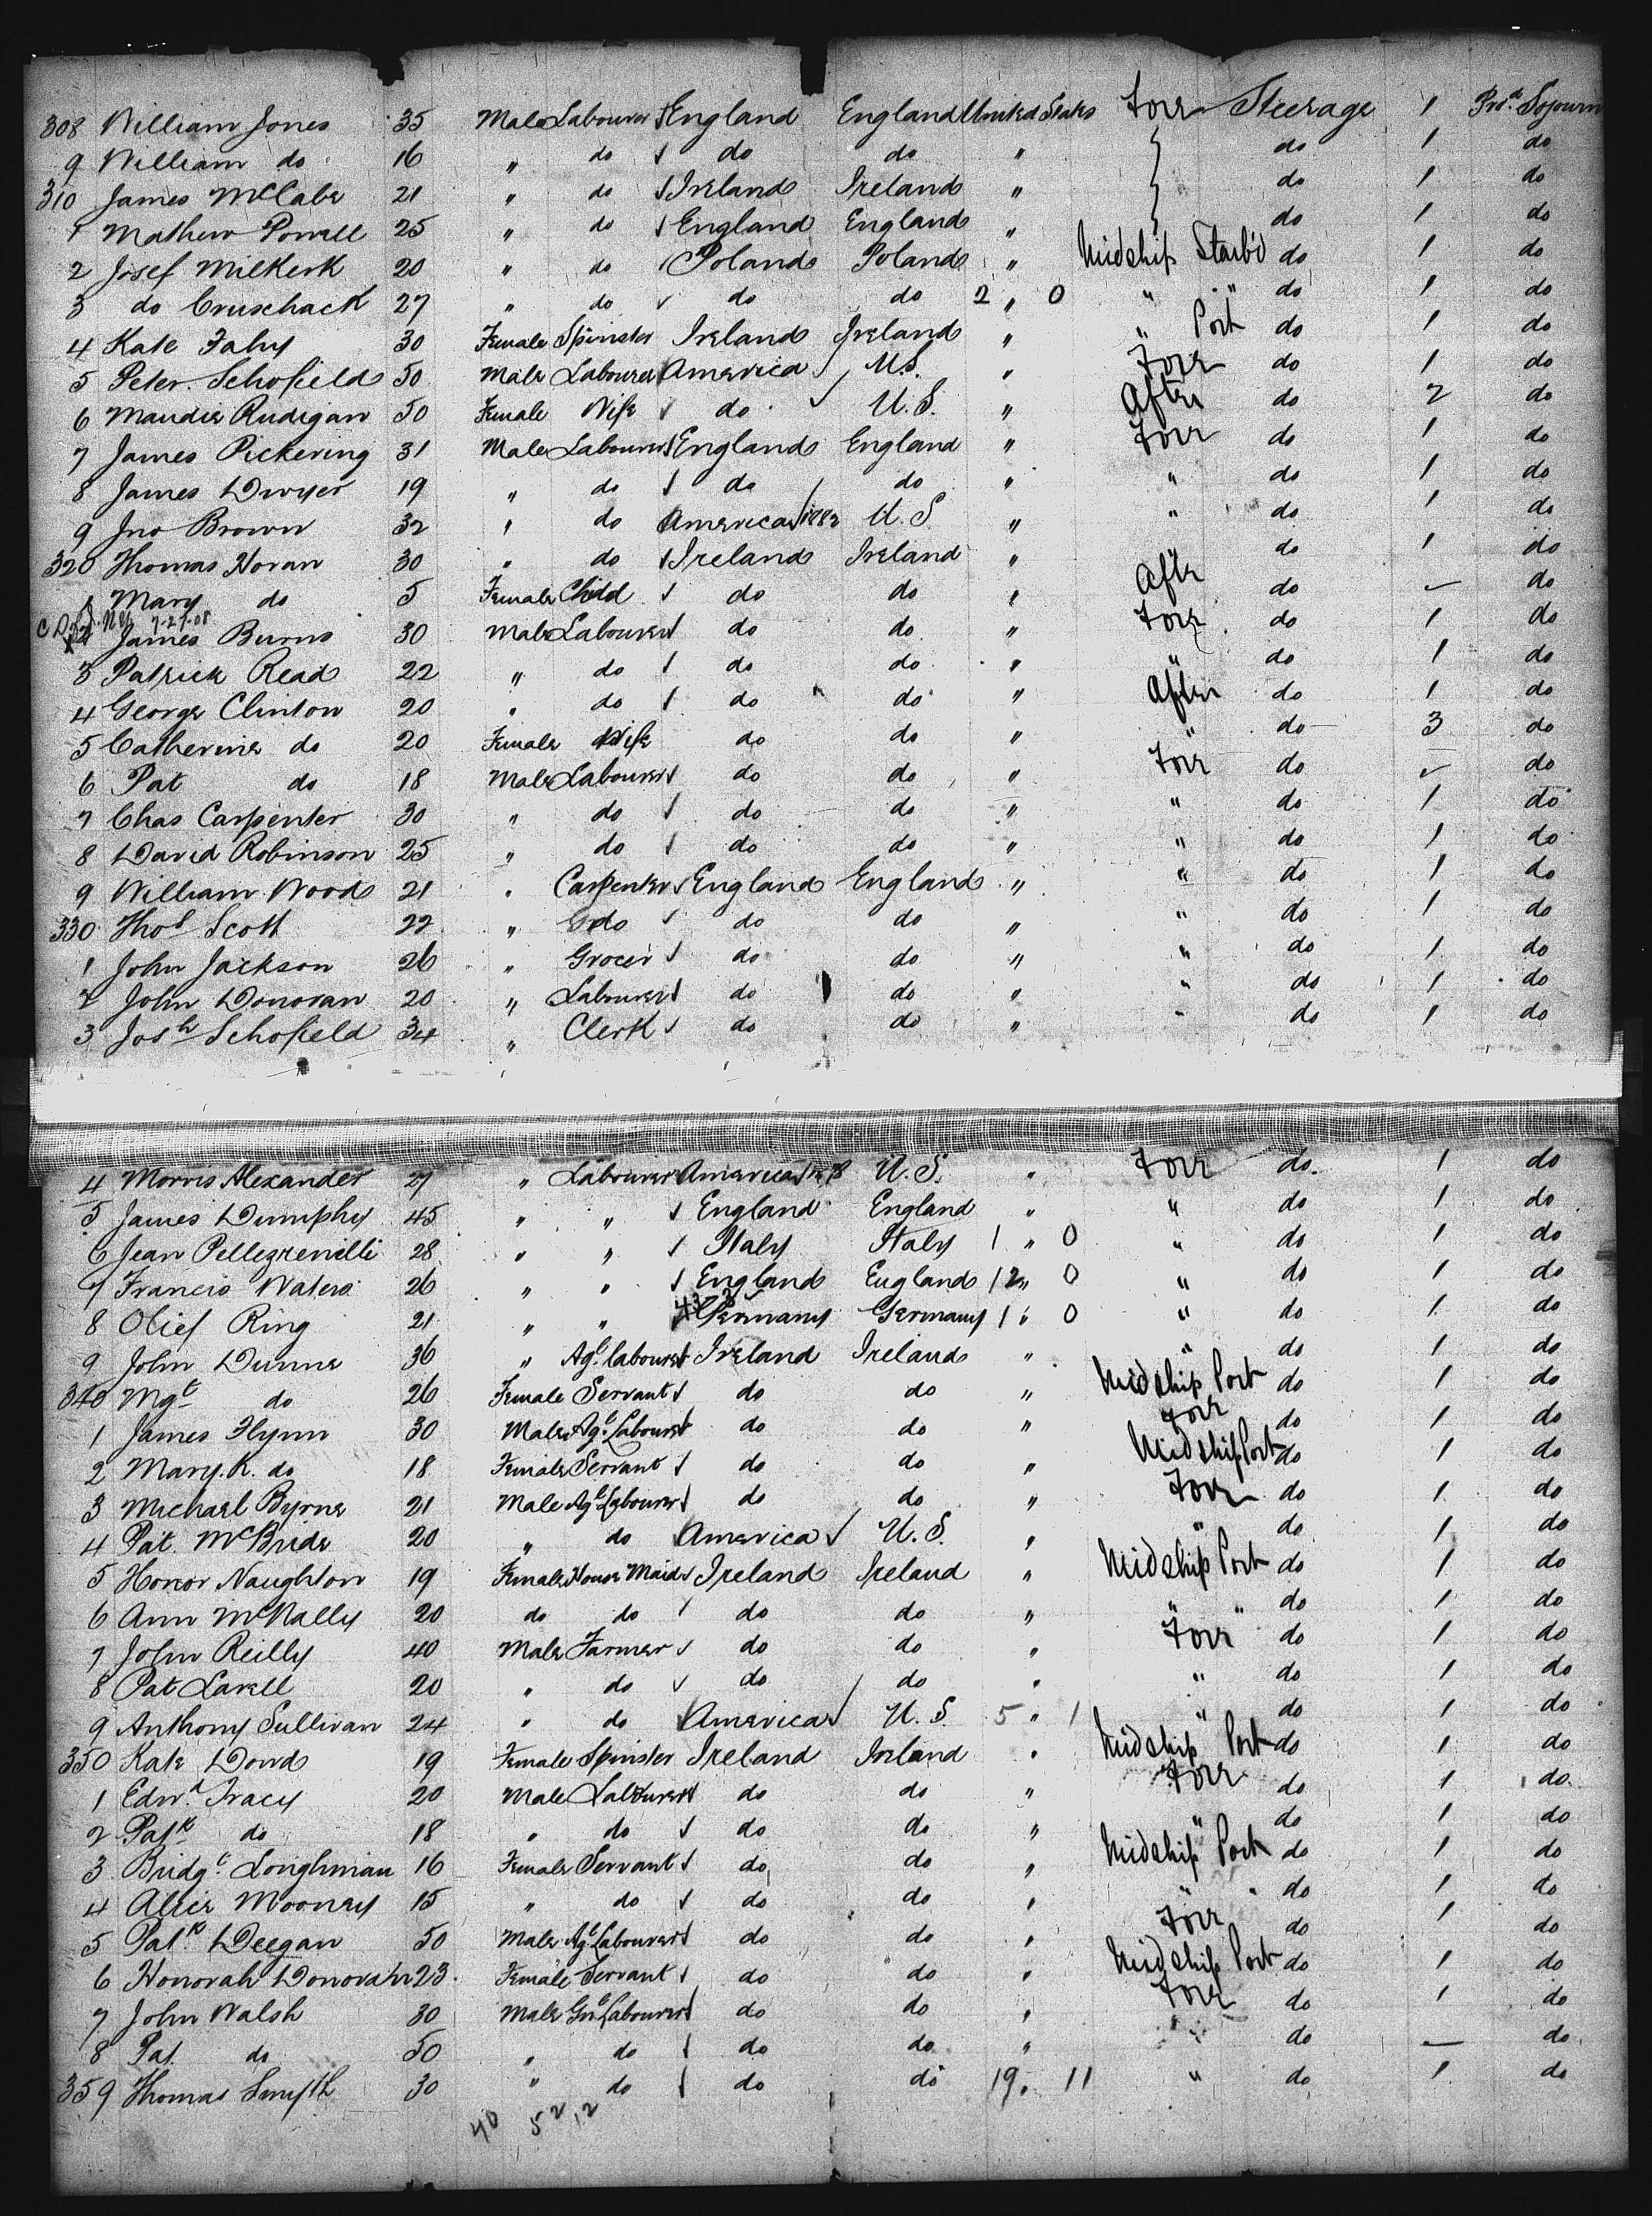 308 William Jones 35 Male Labourer England England United States Forr Steerage 1 Prod. Sojourn
9 William do 16 " do do do " do 1 do
310 James McCabe 21 " do Ireland Ireland " do 1 do
1 Mathew Powell 25 " do England England " do 1 do
2 Josef Milkerk 20 " do Poland Poland " Midship Starb'd do 1 do
3 do Cruschack 27 " do do do 2 " 0 " " do 1 do
4 Kate Fahy 30 Female Spinster Ireland Ireland " " Port do 1 do
5 Peter Schofield 50 Male Labourer America U.S. " Forr do 1 do
6 Maudie Rudigan 50 Female Wife do U.S. " After do 2 do
7 James Pickering 31 Male Labourer England England " Forr do 1 do
8 James Dwyer 19 " do do do " " do 1 do
9 Jno Brown 32 " do America 1882 U.S. " " do 1 do
320 Thomas Horan 30 " do Ireland Ireland " " do 1 do
1 Mary do 5 Female Child do do " After do do
7-27-08
2 James Burns 30 Male Labourer do do " Forr do 1 do
3 Patrick Read 22 " do do do " " do 1 do
4 George Clinton 20 " do do do " After do 1 do
5 Catherine do 20 Female Wife do do " " do 3 do
6 Pat do 18 Male Labourer do do " Forr do do
7 Chas Carpenter 30 " do do do " " do 1 do
8 David Robinson 25 " do do do " " do 1 do
9 William Woods 21 " Carpenter England England " " do 1 do
330 Thos Scott 22 " do do do " " do 1 do
1 John Jackson 26 " Grocer do do " " do 1 do
2 John Donovan 20 " Labourer do do " " do 1 do
3 Josh Schofield 34 " Clerk do do " " do 1 do
4 Morris Alexander 27 " Labourer America U.S. " Forr do 1 do
5 James Dumphy 45 " " England England " " do 1 do
6 Jean Pellezrenilli 28 " " Italy Italy 1 " 0 " do 1 do
7 Francis Waters 26 " " England England 12 " 0 " do 1 do
8 Olief Ring 21 " " Germany Germany 1 " 0 " do 1 do
9 John Dunne 36 " Agl. labourer Ireland Ireland " " do 1 do
340 Mgt do 26 Female Servant do do " Midship Port do 1 do
1 James Flynn 30 Male Agl. Labourer do do " Forr do 1 do
2 Mary. K. do 18 Female Servant do do " Midship Port do 1 do
3 Michael Byrne 21 Male Agl. Labourer do do " Forr do 1 do
4 Pat. McBride 20 " do America U.S. " " do 1 do
5 Honor Naughton 19 Female House Maid Ireland Ireland " Midship Port do 1 do
6 Ann McNally 20 do do do do " " " do 1 do
7 John Reilly 40 Male Farmer do do " Forr do 1 do
8 Pat Lavell 20 " do do do " " do 1 do
9 Anthony Sullivan 24 " do America U.S. 5 " 1 " do 1 do
350 Kate Dowd 19 Female Spinster Ireland Ireland " Midship Port do 1 do
1 Edwd. Tracy 20 Male Labourer do do " Forr do 1 do
2 Patk do 18 " do do do " " do 1 do
3 Bridgt. Loughman 16 Female Servant do do " Midship Port do 1 do
4 Alice Mooney 15 " do do do " " " do 1 do
5 Patk. Deegan 50 Male Agl. Labourer do do " Forr do 1 do
6 Honorah Donovahn 23 Female Servant do do " Midship Port do 1 do
7 John Walsh 30 Male Gnl. Labourer do do " Forr do 1 do
8 Pat. do 50 " do do do " " do — do
359 Thomas Smyth 30 " do do do 19 " 11 " do 1 do
40 52 12